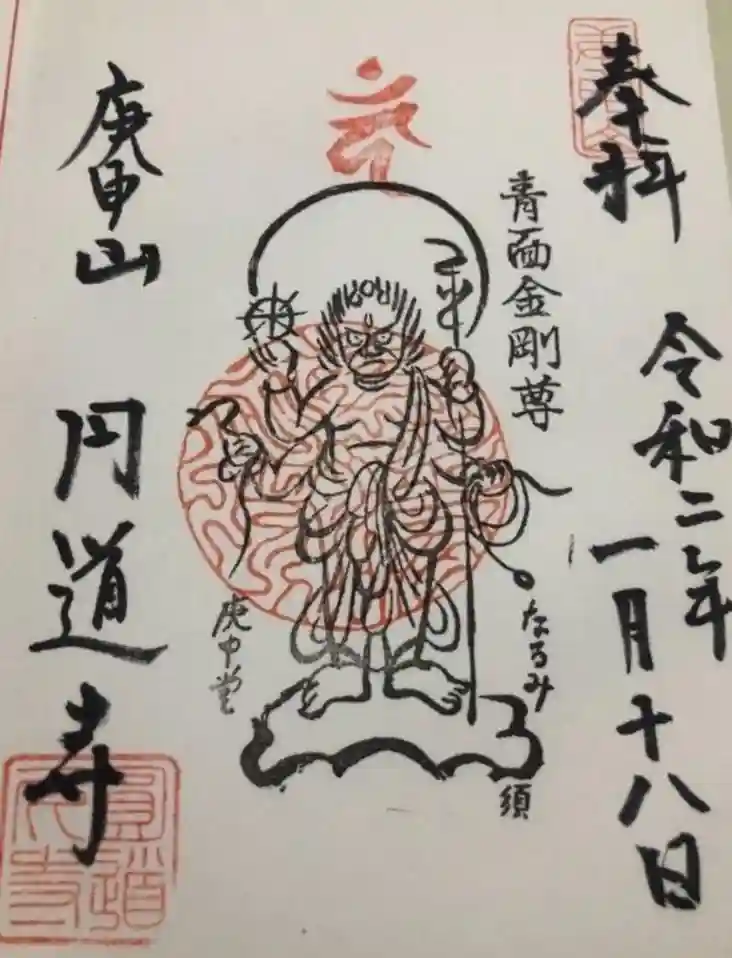 奉拝
令和二年
一月十八日
青面金剛尊
なるみ
須
庚申堂
庚申山
円道寺